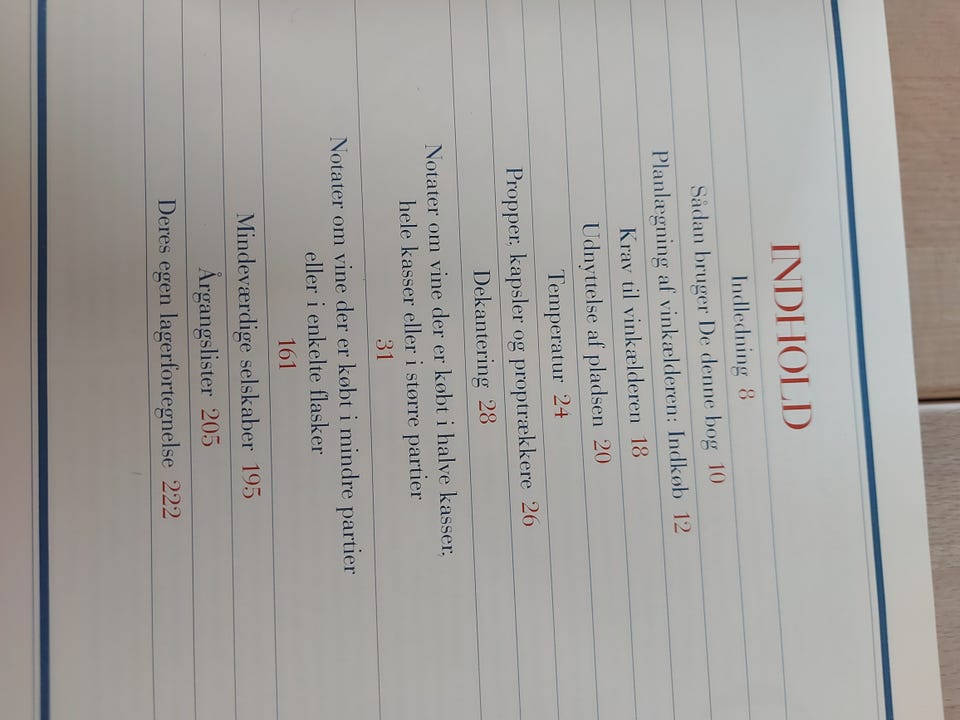 INDHOLD
Indledning 8
Sådan bruger De denne bog 10
Planlægning af vinkælderen: Indkøb 12
Krav til vinkælderen 18
Udnyttelse af pladsen 20
Temperatur 24
Propper, kapsler og proptrækkere 26
Dekantering 28
Notater om vine der er købt i halve kasser,
hele kasser eller i større partier
31
Notater om vine der er købt i mindre partier
eller i enkelte flasker
161
Mindeværdige selskaber 195
Årgangslister 205
Deres egen lagerfortegnelse 222